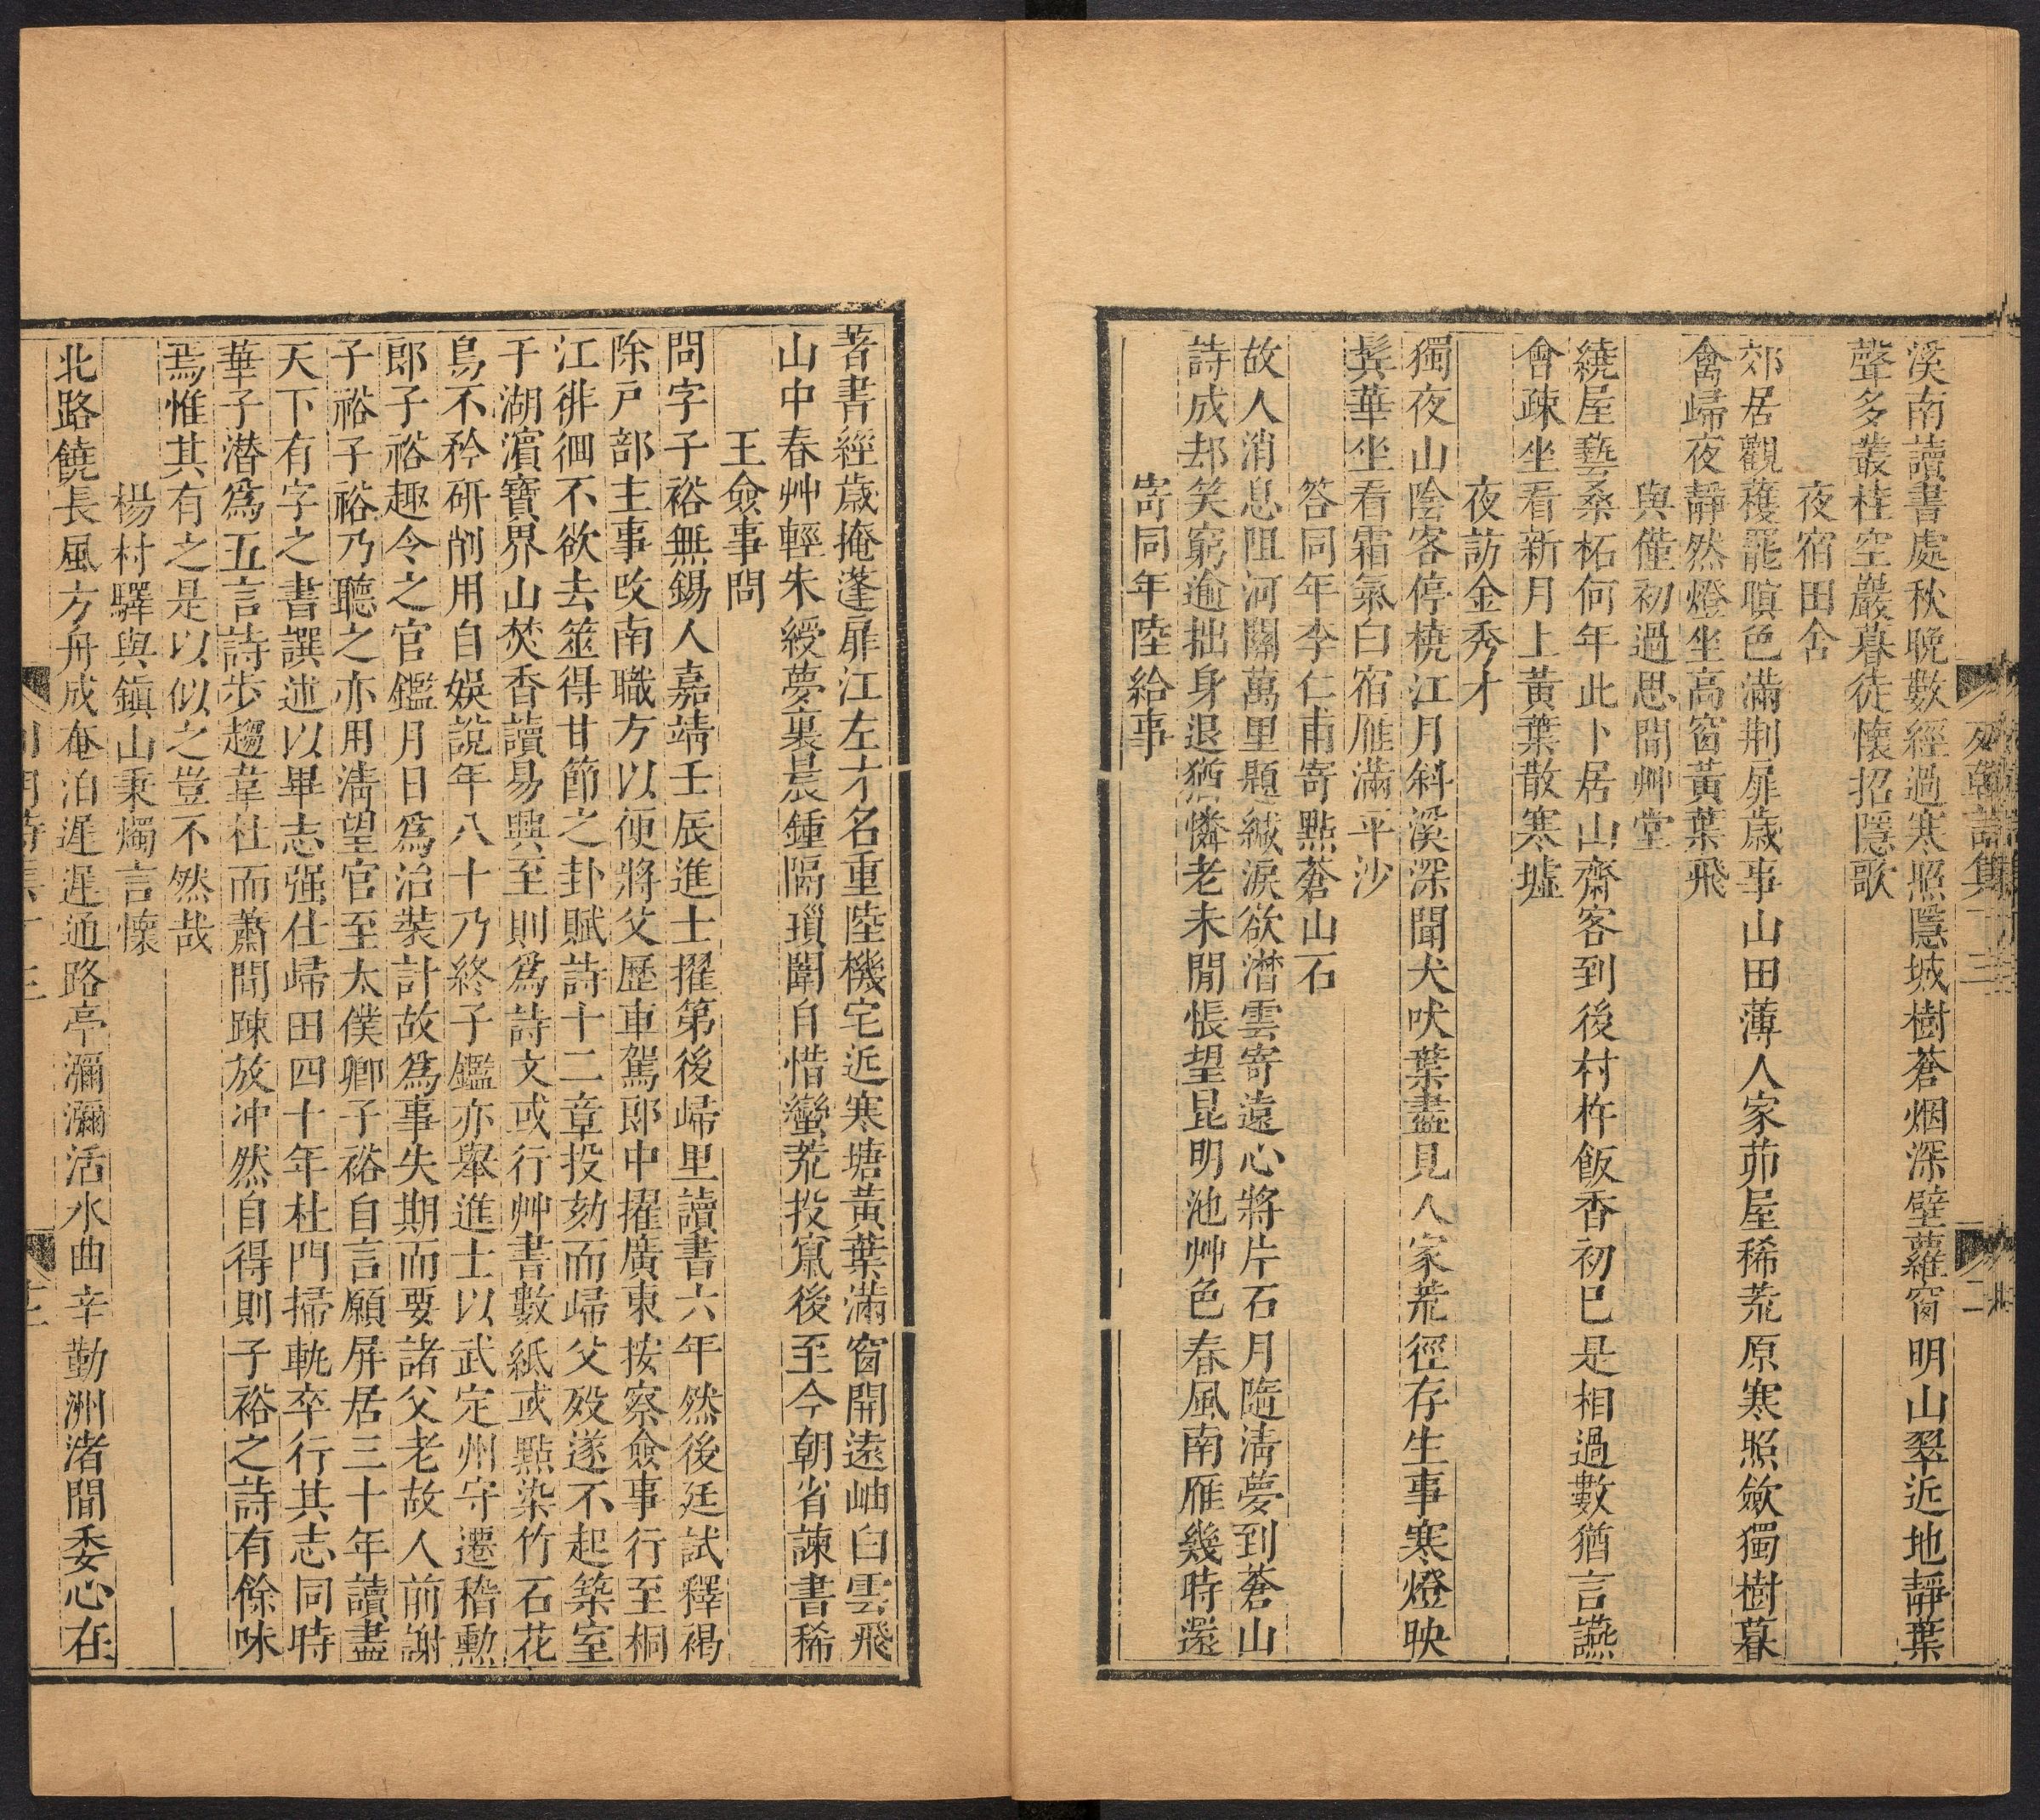 溪南讀書處秋晚數經過寒照隱城樹蒼烟深壁蘿窗明山翠近地靜葉
聲多叢桂空巖暮徒懷招隱歌
夜宿田舍
郊居觀穫罷暝色滿荆扉歲事山田薄人家茆屋稀荒原寒照歛獨樹暮
禽歸夜靜然燈坐高窗黃葉飛
與僅初過思間艸堂
繞屋藝桑柘何年此卜居山齋客到後村杵飯香初巳是相過數猶言讌
會疎坐看新月上黃葉散寒墟
夜訪金秀才
獨夜山陰客停橈江月斜溪深聞犬吠葉盡見人家荒徑存生事寒燈映
鬂華坐看霜氣白宿雁滿平沙
答同年李仁甫寄點蒼山石
故人消息阻河關萬里題緘淚欲潸雲寄遠心將片石月隨淸夢到蒼山
詩成却笑窮逾拙身退猶憐老未閒悵望昆明池艸色春風南雁幾時還
寄同年陸給事
列朝詩集丁三
二
著書經歲掩蓬扉江左才名重陸機宅近寒塘黃葉滿窗開遠岫白雲飛
山中春艸輕朱綬夢裏晨鍾隔瑣闈自惜蠻荒投竄後至今朝省諫書稀
王僉事問
問字子裕無錫人嘉靖壬辰進士擢第後歸里讀書六年然後廷試釋褐
除戸部主事攺南職方以便將父歷車駕郎中擢廣東按察僉事行至桐
江徘徊不欲去筮得甘節之卦賦詩十二章投劾而歸父歿遂不起築室
于湖濵寶界山焚香讀易興至則爲詩文或行艸書數紙或點染竹石花
鳥不矜研削用自娛説年八十乃終子鑑亦舉進士以武定州守遷稽勲
郎子裕趣令之官鑑月日爲治裝計故爲事失期而要諸父老故人前謝
子裕子裕乃聽之亦用淸望官至太僕卿子裕自言願屏居三十年讀盡
天下有字之書譔述以畢志强仕歸田四十年杜門掃軌卒行其志同時
華子潛爲五言詩步趨韋杜而蕭閒踈放冲然自得則子裕之詩有餘味
焉惟其有之是以似之豈不然哉
楊村驛與鎭山秉燭言懷
北路饒長風方舟成奄泊遲遲通路亭瀰瀰活水曲辛勤洲渚間委心在